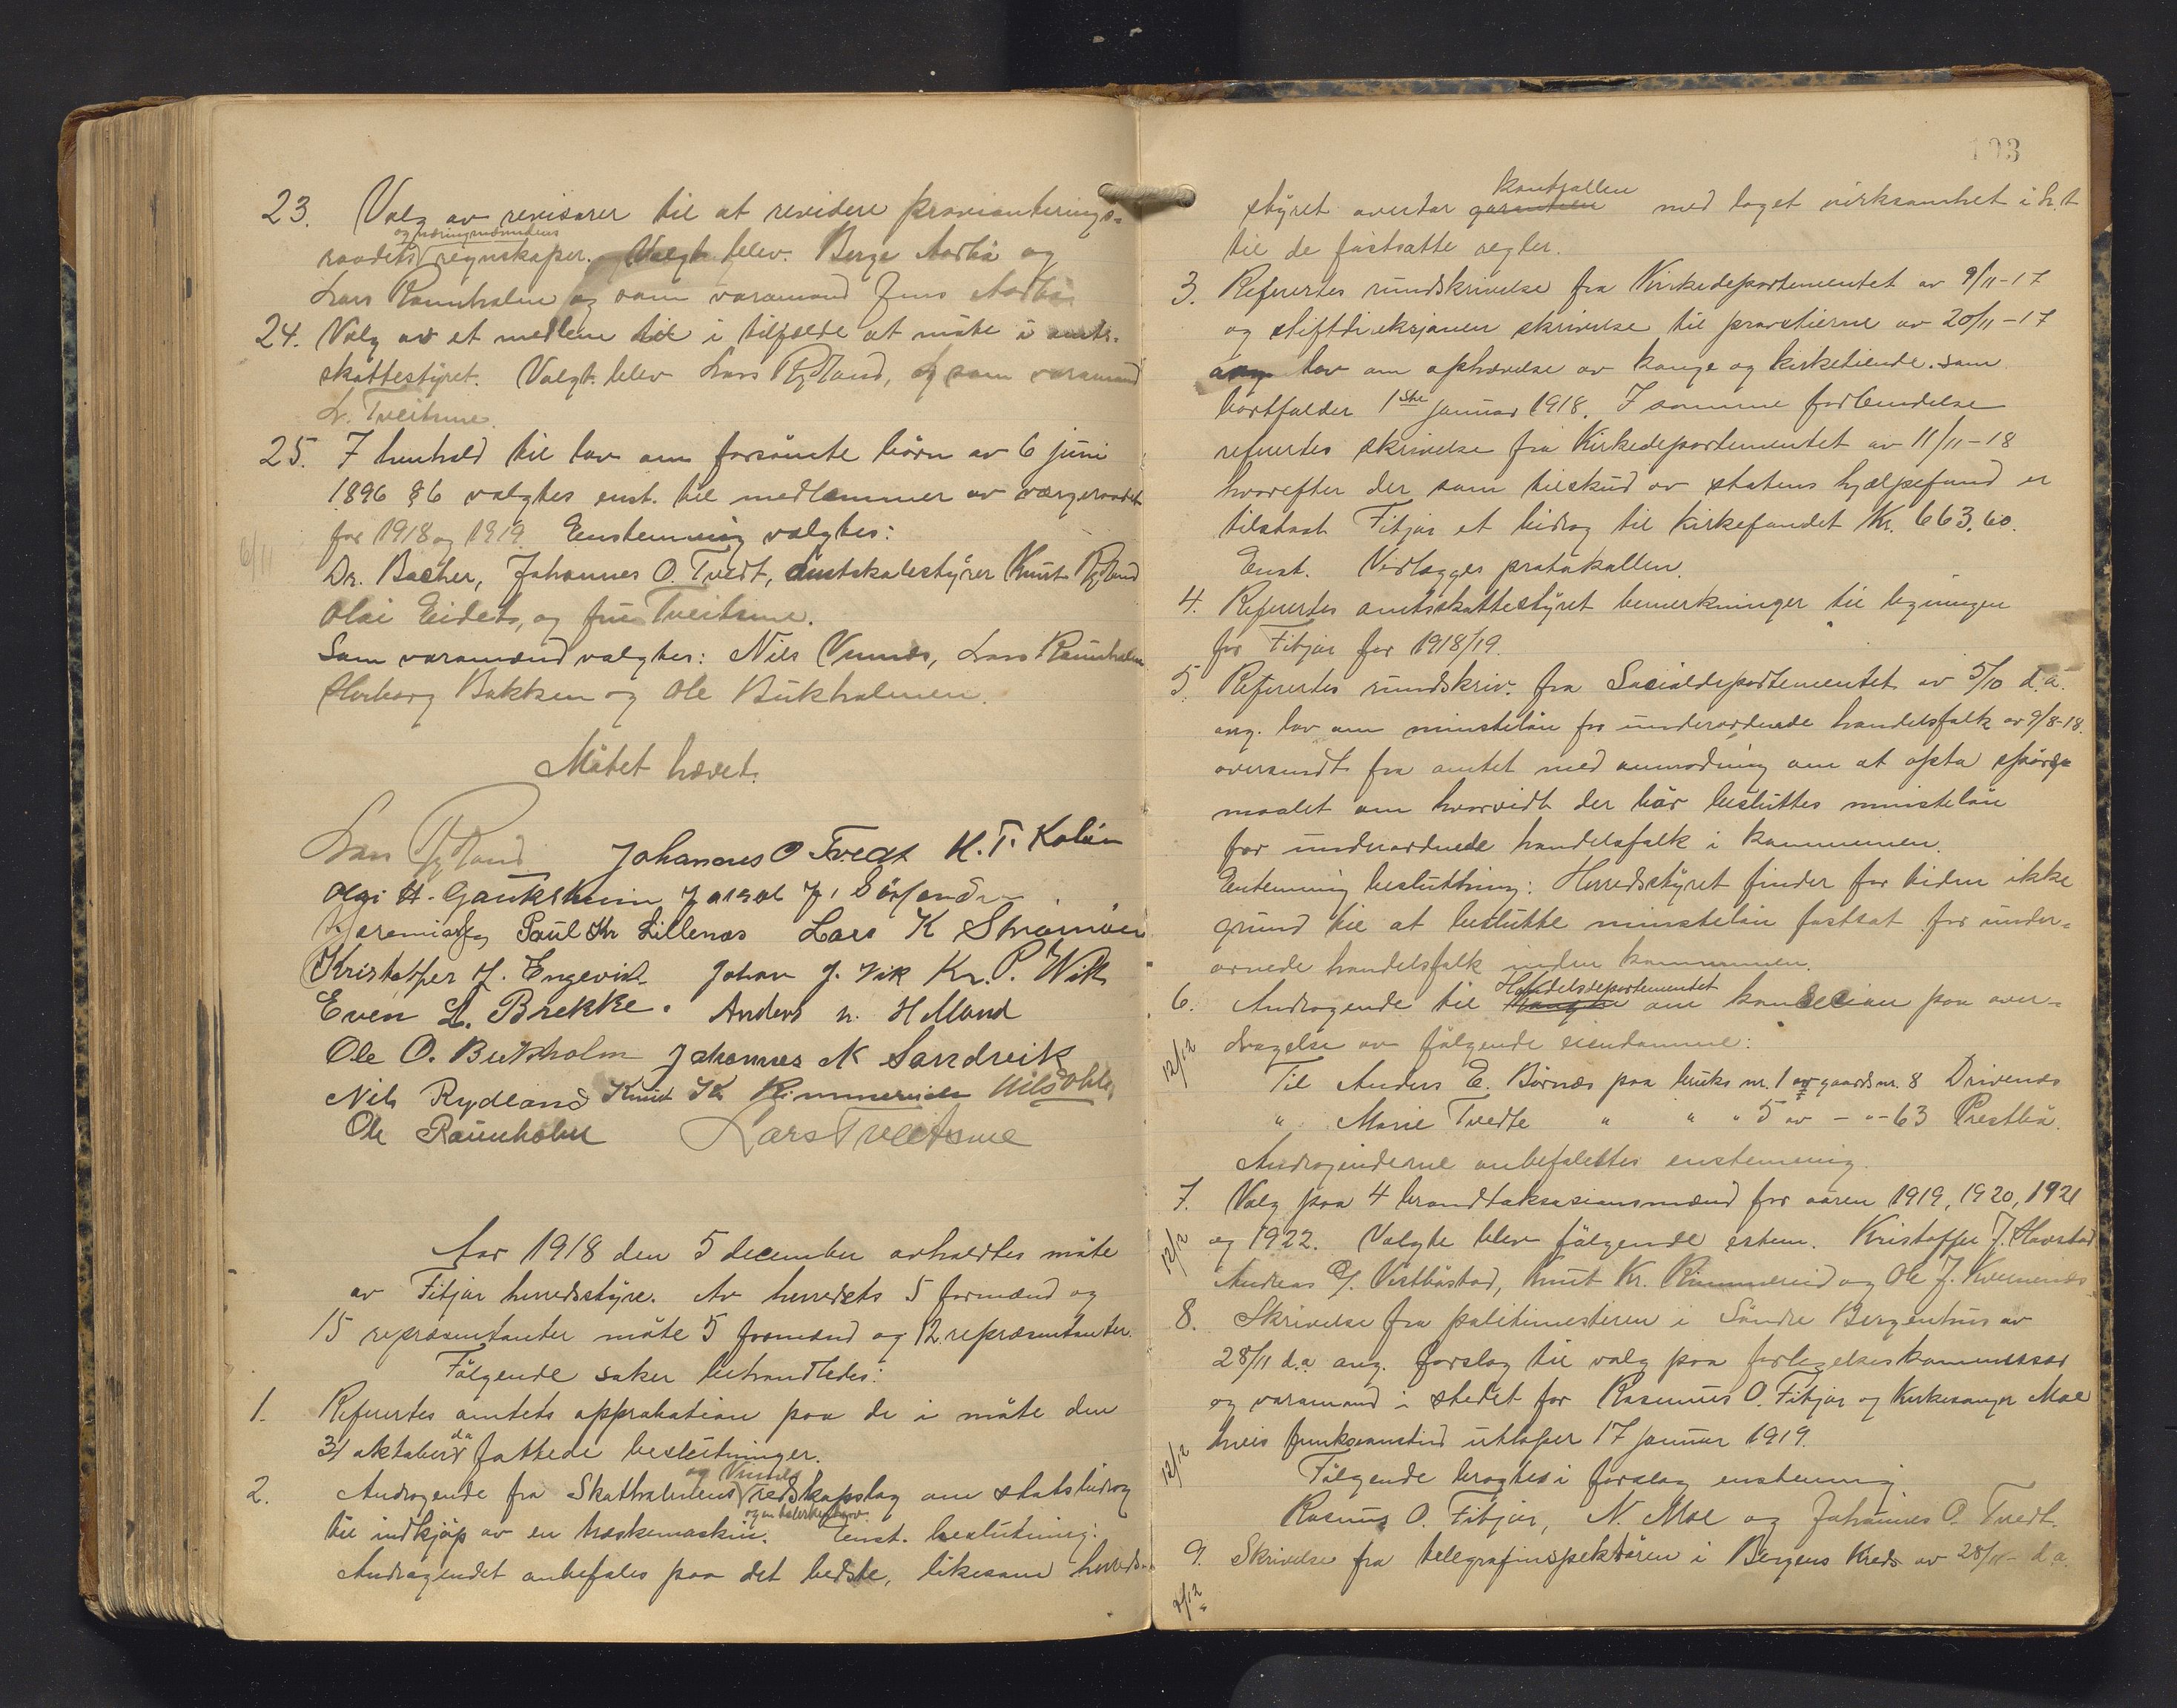 23. Valg av revisorer til at revidere provianterings=
og næringsnemndens
raadets regnskaper. Valgt blev. Berge Aarbø og
Lars Raunholm og som varamand Jens Aarbø
24. Valg av et medlem til i tilfælde at møte i amts-
skattestyret. Valgt blev Lars Rydland, og som varamand
L. Tveitsme.
25. I henhold til lov om forsømte børn av 6 juni
1896 § 6 valgtes enst. til medlemmer av vergeraadet
for 1918 og 1919. Enstemmig valgtes:
6/11
Dr. Bacher, Johannes O. Tvedt, amtskolestyrer Knut Rydland
Olai Eidets, og fru Tveitsme.
Som varamænd valgtes: Nils Vinnes, Lars Raunholm
Herborg Bakken og Ole Bukholmen.
Møtet hævet.
Lars Rydland Johannes O Tvedt K. T. Koløen
Olai H. Gauksheim J. Sørland
Jeremias Paul Kr Lillenæs Lars K Strømøen
Kristoffer J. Engevik Johan J. Vik Kr. P. Wik
Even L. Brekke. Anders N. Helland
Ole O. Bukholm Johannes K Sandvik
Nils Rydland Knut K Rimmereide Nils
Ole Raunholm Lars Tveitsme
Aar 1918 den 5 december avholdtes møte
av Fitjar herredsstyre. Av herredets 5 formænd og
15 repræsentanter møtte 5 formænd og 12 repræsentanter.
Følgende saker behandledes:
1. Refertes amtets approbation paa de i møte den
31 oktober da fattede beslutninger.
og Vinnes
2. Andragende fra Skatholmens redskapslag om statsbidrag
til indkjøp av en træskemaskin. Enst. beslutning:
Andragendet anbefales paa det bedste, likesom herreds-
103
kontrollen
styret overtar garantien med laget virksomhet i h.t
til de fastsatte regler.
3. Refertes rundskrivelse fra Kirkedepartementet av 9/11-17
og stiftdireksjonen skrivelse til provstierne av 20/11-17
ang lov om ophævelse av konge og kirketiende som
bortfalder 1ste januar 1918. I samme forbindelse
refertes skrivelse fra Kirkedepartementet av 11/11-18
hvorefter der som tilskud av statens hjælpefond er
tilstaat Fitjar et bidrag til kirkefondet Kr. 663.60.
Enst. Vedlægges protokollen.
4. Refertes amtsskattestyret bemerkninger til ligningen
for Fitjar for 1918/19.
5. Refertes rundskriv. fra Socialdepartementet av 5/10 d.a.
ang. lov om minsteløn for underordnede handelsfolk av 9/8-18.
oversendt fra amtet med anmodning om at opta spørgs
maalet om hvorvidt der bør besluttes minsteløn
for underordnede handelsfolk i kommunen.
Enstemmig beslutning: Herredsstyret finder for tiden ikke
grund til at beslutte minsteløn fastsat for under-
ornede handelsfolk inden kommunen.
Handelsdepartementet
6. Andragende til om konsesion paa over-
dragelse av følgende eiendomme:
12/12
Til Anders E. Børnes paa bruks nr. 1 av gaards nr. 8 Drivenes
" Marie Tvedte " " " 5 av - " - 63 Prestbø.
Andragenderne anbefaletes enstemmig.
7. Valg paa 4 brandtaksasionsmænd for aaren 1919, 1920, 1921
12/12
og 1922. Valgte blev følgende estem. Kristoffer J. Havstad
Andreas O. Vestbøstad, Knut Kr. Rimmereid og Ole J. Kvernenes
8. Skrivelse fra politimesteren i Søndre Bergenhus av
28/11 d.a ang. forslag til valg paa forligelseskommissær
og varamand i stedet for Rasmus O. Fitjar og kirkesanger Moe
hvis funksjonstid utløper 17 januar 1919.
12/12
Følgende bragtes i forslag enstemmig
Rasmus O. Fitjar, N. Moe og Johannes O. Tvedt.
9. Skrivelse fra telegrafinspektøren i Bergens Kreds av 28/11- d.a.